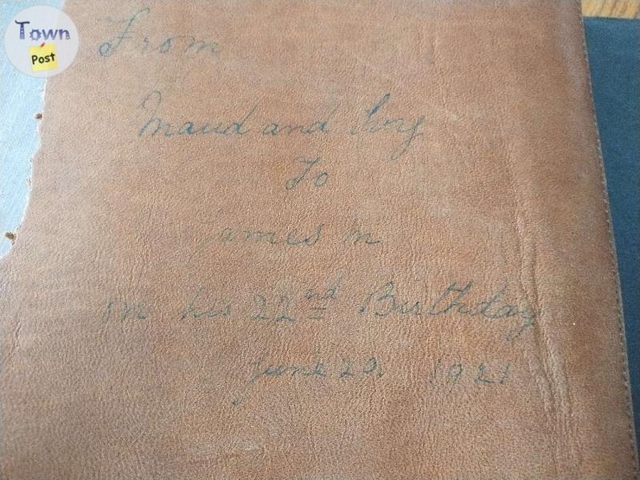 Town
Post
From
Maud and
To
ames M
on his 22nd Birthday
June 29. 1921